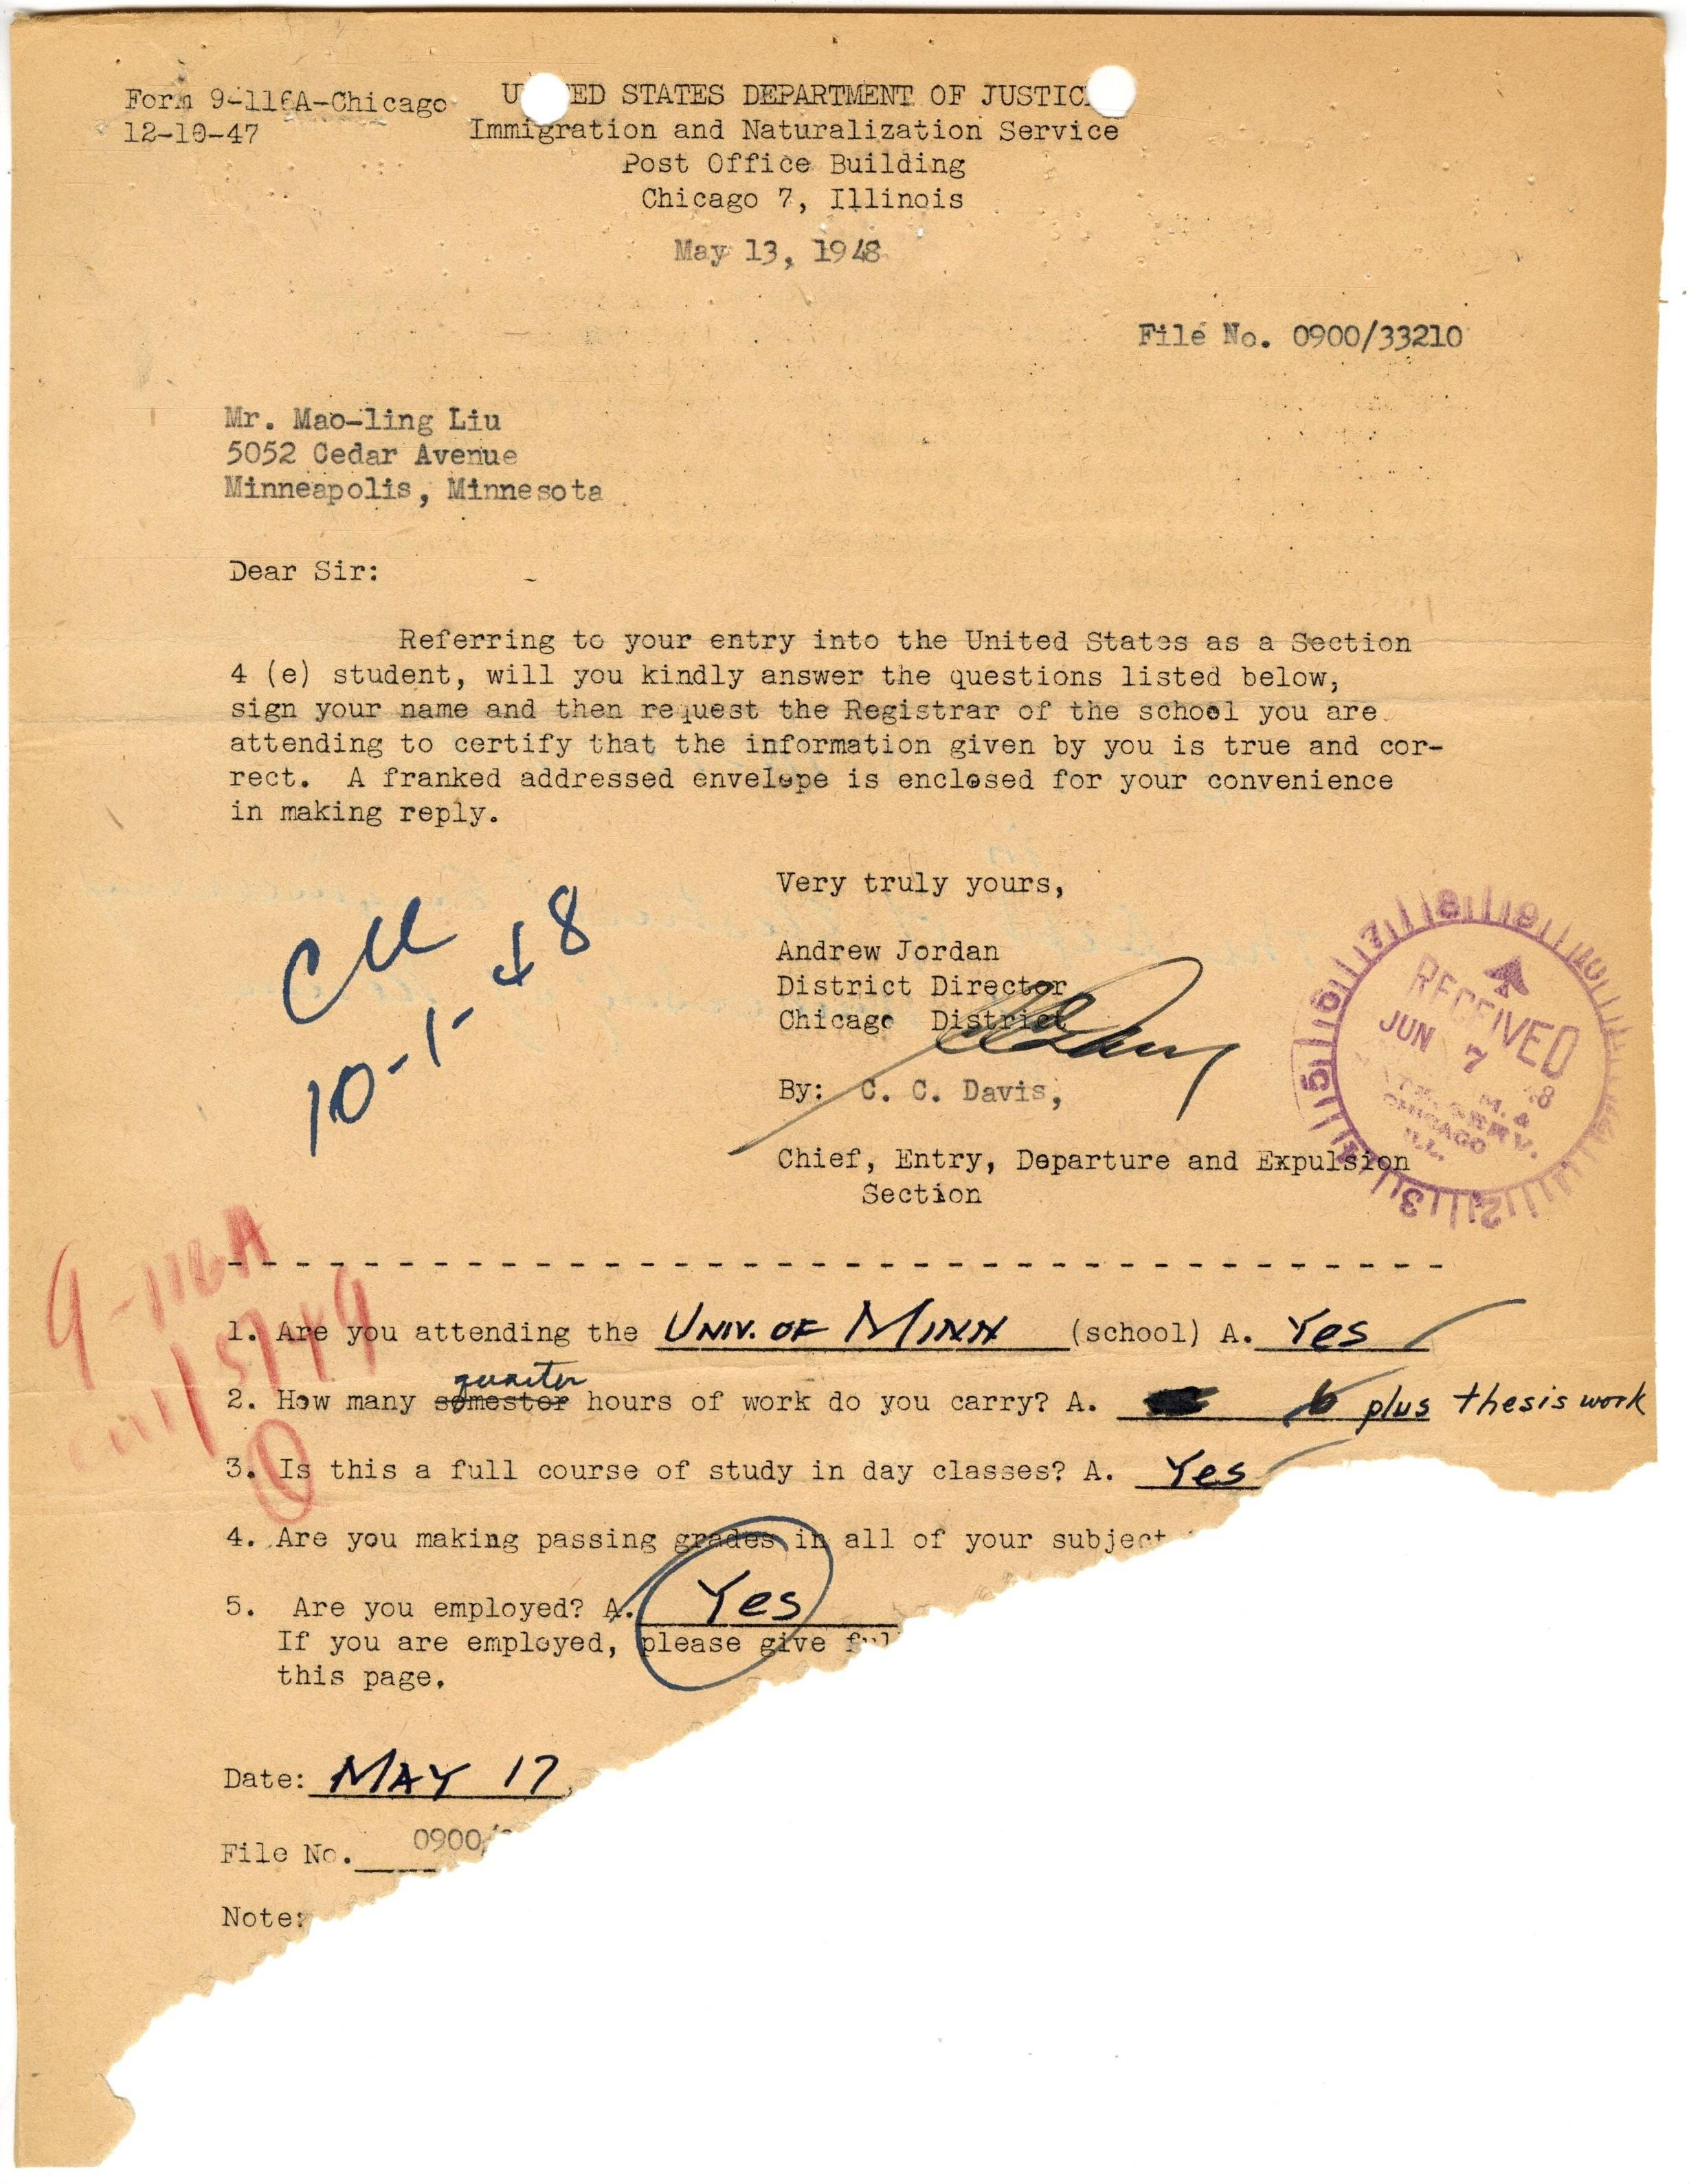 Form 9-116A-Chicago
12-10-47
U ED STATES DEPARTMENT OF JUSTIC
Immigration and Naturalization Service
Post Office Building
Chicago 7, Illinois
May 13, 1948
File No. 0900/33210
Mr. Mao-ling Liu
5052 Cedar Avenue
Minneapolis, Minnesota
Dear Sir:
Referring to your entry into the United States as a Section
4 (e) student, will you kindly answer the questions listed below,
sign your name and then request the Registrar of the school you are
attending to certify that the information given by you is true and cor-
rect. A franked addressed envelope is enclosed for your convenience
in making reply.
Very truly yours,
Andrew Jordan
District Director
Chicago District
By: C. C. Davis,
Chief, Entry, Departure and Expulsion
Section
10-1-48
RECEIVED
JUN 7 48
CHICAGO
ILL.
9-116A
1. Are you attending the UNIV. OF MINN (school) A. Yes
2. How many semester quarter hours of work do you carry? A. 6 plus thesis work
3. Is this a full course of study in day classes? A. Yes
4. Are you making passing grades in all of your subject
5. Are you employed? A. Yes
If you are employed, please give ful
this page.
Date: MAY 17
File No. 0900/
Note: